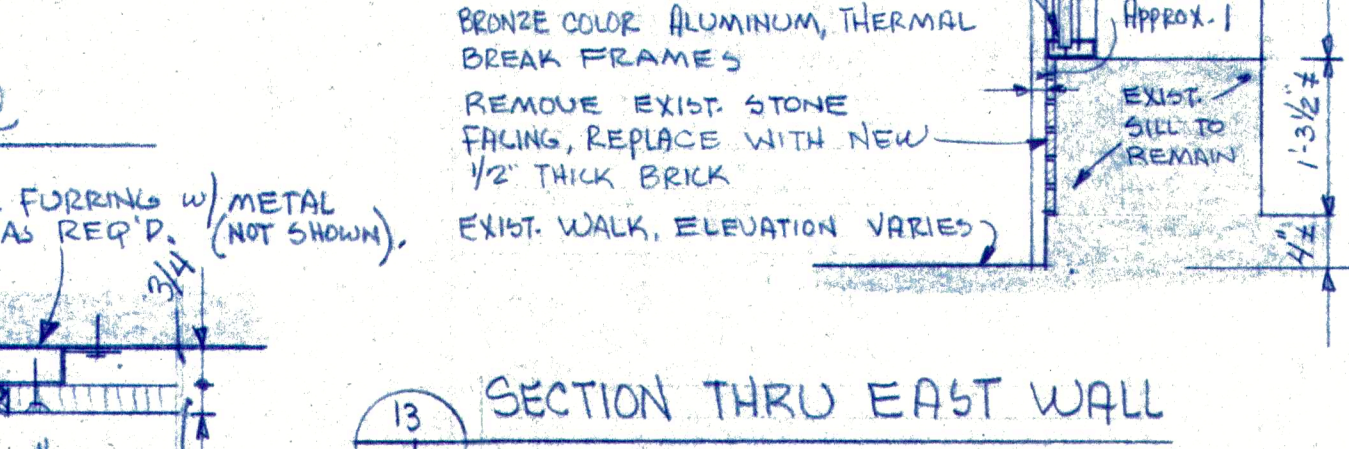 BRONZE COLOR ALUMINUM, THERMAL
BREAK FRAMES
REMOVE EXIST. STONE
FACING, REPLACE WITH NEW
1/2" THICK BRICK
EXIST. WALK, ELEVATION VARIES
APPROX. 1
EXIST.
SILL TO
REMAIN
1'-3 1/2" ±
4" ±
FURRING W/ METAL
AS REQ'D. (NOT SHOWN).
3/4
13 SECTION THRU EAST WALL